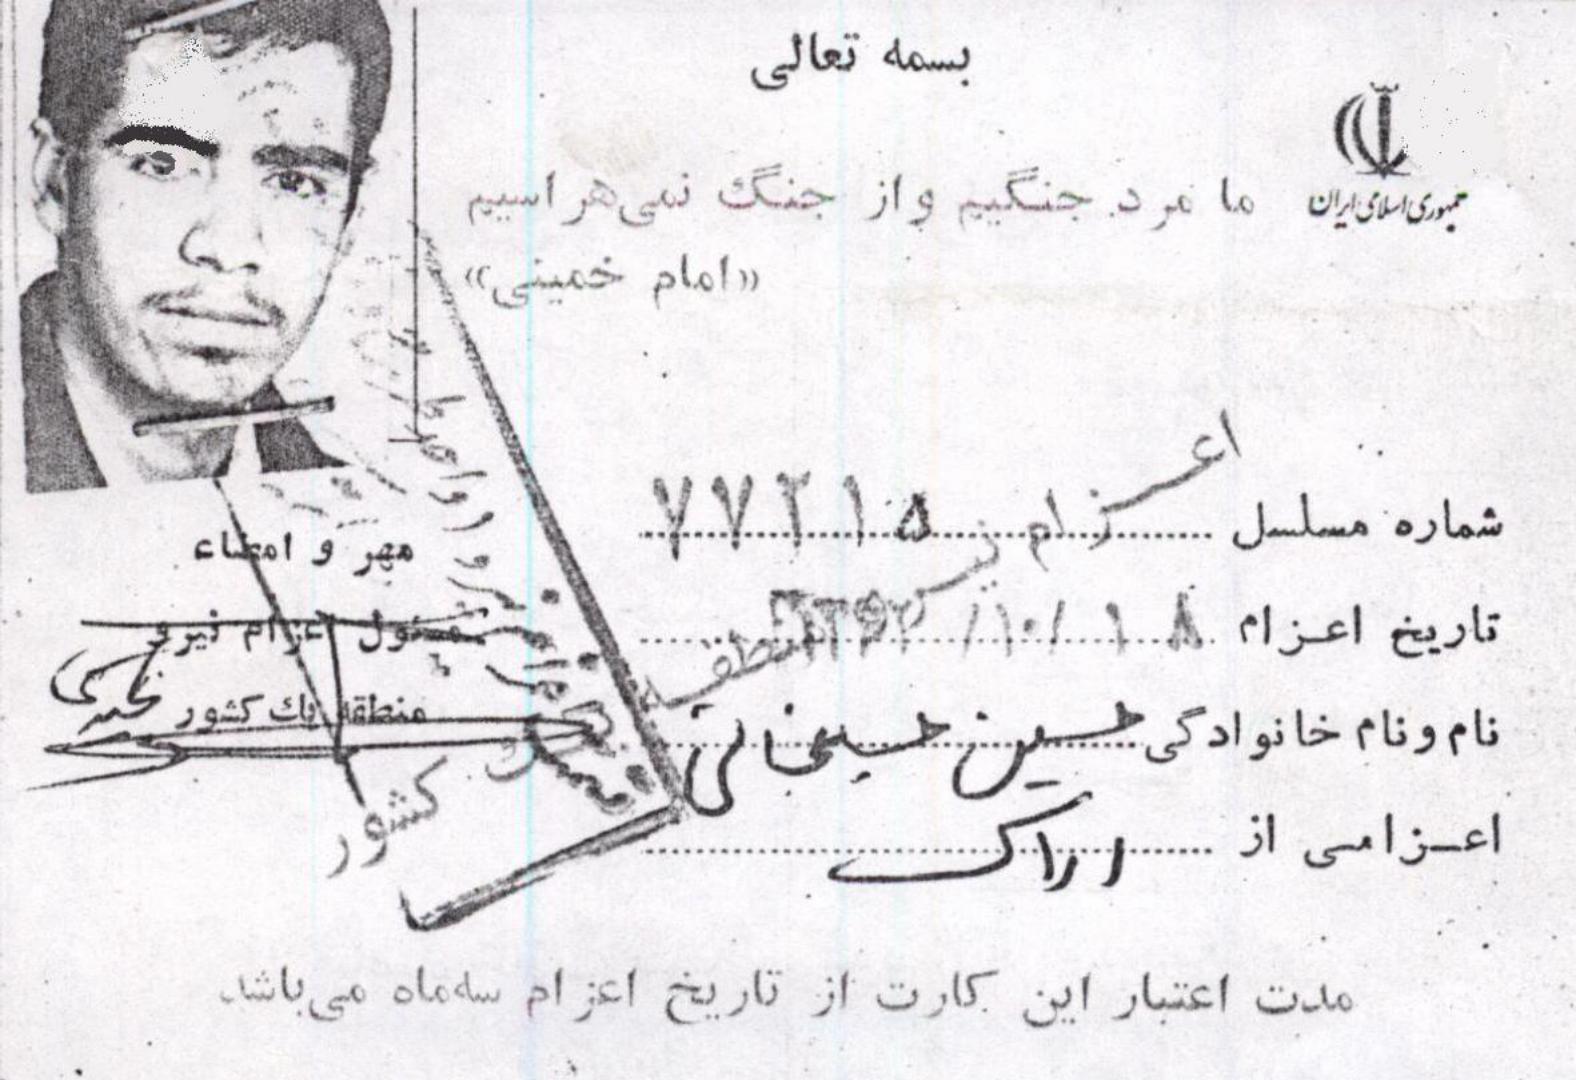 بسمه تعالی
جمهوری اسلامی ایران
ما مرد جنگیم و از جنگ نمی‌هراسیم
«امام خمینی»
شماره مسلسل ۷۷۲۱۵
تاریخ اعزام
نام و نام خانوادگی حسین حسینخانی
اعزامی از اراک
مهر و امضاء
مسئول اعزام نیرو
منطقه یك كشور
اعزام نیرو
منطقه
کشور
مدت اعتبار این کارت از تاریخ اعزام سه‌ماه می‌باشد